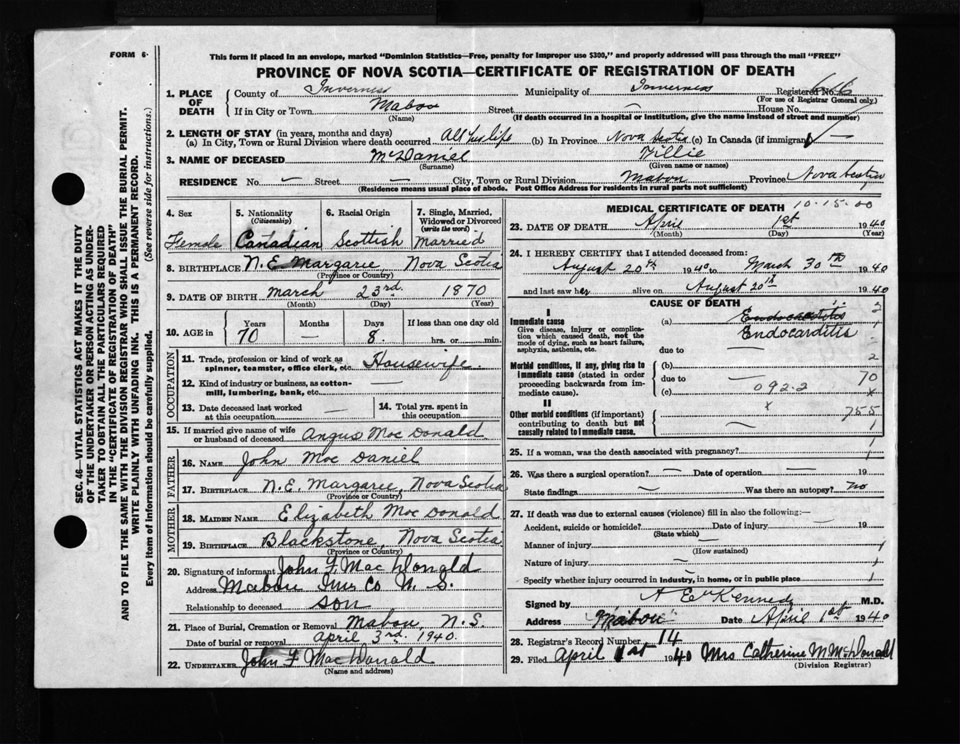 FORM 6.
This form if placed in an envelope, marked "Dominion Statistics—Free, penalty for improper use $300," and properly addressed will pass through the mail "FREE"
PROVINCE OF NOVA SCOTIA—CERTIFICATE OF REGISTRATION OF DEATH
SEC. 46—VITAL STATISTICS ACT MAKES IT THE DUTY
OF THE UNDERTAKER OR PERSON ACTING AS UNDER-
TAKER TO OBTAIN ALL THE PARTICULARS REQUIRED
IN THE "CERTIFICATE OF REGISTRATION OF DEATH"
AND TO FILE THE SAME WITH THE DIVISION REGISTRAR WHO SHALL ISSUE THE BURIAL PERMIT.
WRITE PLAINLY WITH UNFADING INK. THIS IS A PERMANENT RECORD.
Every item of information should be carefully supplied. (See reverse side for instructions.)
1. PLACE OF DEATH County of Inverness Municipality of Inverness Registered No.
(For use of Registrar General only.)
If in City or Town Mabou Street — House No.
(Name) (If death occurred in a hospital or institution, give the name instead of street and number)
2. LENGTH OF STAY (in years, months and days)
(a) In City, Town or Rural Division where death occurred All her life (b) In Province Nova Scotia (c) In Canada (if immigrant) —
3. NAME OF DECEASED McDaniel Tillie
(Surname) (Given name or names)
RESIDENCE No. — Street — City, Town or Rural Division Mabou Province Nova Scotia
(Residence means usual place of abode. Post Office Address for residents in rural parts not sufficient)
4. Sex 5. Nationality (Citizenship) 6. Racial Origin 7. Single, Married, Widowed or Divorced (write the word)
Female Canadian Scottish Married
8. BIRTHPLACE N.E. Margaree Nova Scotia
(Province or Country)
9. DATE OF BIRTH March 23rd 1870
(Month) (Day) (Year)
10. AGE in Years Months Days If less than one day old
70 — 8. hrs. or min.
OCCUPATION
11. Trade, profession or kind of work as
spinner, teamster, office clerk, etc. Housewife.
12. Kind of industry or business, as cotton-
mill, lumbering, bank, etc. —
13. Date deceased last worked
at this occupation —
14. Total yrs. spent in
this occupation
15. If married give name of wife
or husband of deceased Angus Mac Donald
FATHER
16. NAME John Mac Daniel
17. BIRTHPLACE N.E. Margaree, Nova Scotia
(Province or Country)
MOTHER
18. MAIDEN NAME Elizabeth Mac Donald
19. BIRTHPLACE Blackstone, Nova Scotia
(Province or Country)
20. Signature of informant John F Mac Donald
Address Mabou Inv. Co N. S.
Relationship to deceased son
21. Place of Burial, Cremation or Removal Mabou, N.S
Date of burial or removal April 3rd. 1940.
22. UNDERTAKER John F MacDonald
(Name and address)
MEDICAL CERTIFICATE OF DEATH
23. DATE OF DEATH April 1st 1940
(Month) (Day) (Year)
24. I HEREBY CERTIFY that I attended deceased from:
August 20th 1940 to March 30th 1940
and last saw her alive on August 20th 1940
CAUSE OF DEATH
I
Immediate cause (a) Endocarditis
Give disease, injury or complica-
tion which caused death, not the
mode of dying, such as heart failure,
asphyxia, asthenia, etc.
Endocarditis
due to —
Morbid conditions, if any, giving rise to
immediate cause (stated in order
proceeding backwards from im-
mediate cause).
(b)
due to —
(c) 092.2
2
70
II
Other morbid conditions (if important)
contributing to death but not
causally related to immediate cause.
755
25. If a woman, was the death associated with pregnancy?
26. Was there a surgical operation? — Date of operation — 19
State findings — Was there an autopsy? no
27. If death was due to external causes (violence) fill in also the following:—
Accident, suicide or homicide? Date of injury — 19
(State which)
Manner of injury —
(How sustained)
Nature of injury —
Specify whether injury occurred in industry, in home, or in public place
Signed by Kennedy M.D.
Address Mabou Date April 1st 1940
28. Registrar's Record Number 14
29. Filed April 1st 1940 Mrs Catherine M McDonald
(Division Registrar)